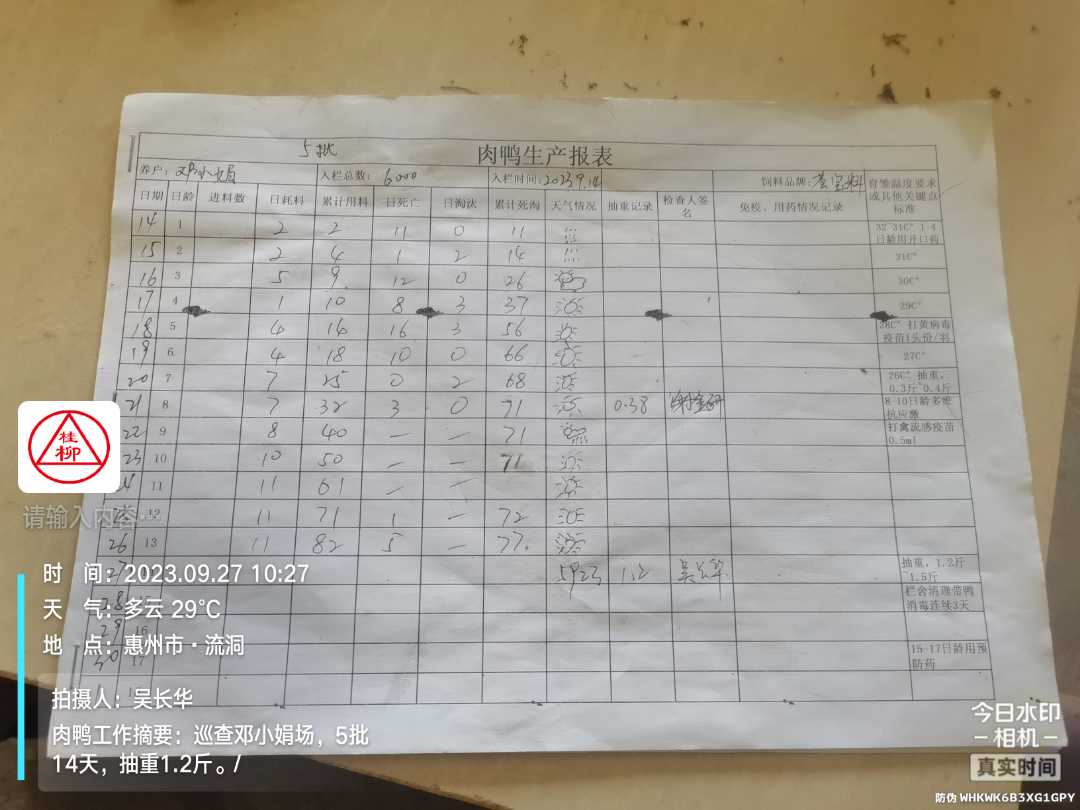 5批
肉鸭生产报表
养户：邓小娟 入栏总数：6000 入栏时间：2023.9.14 饲料品牌： 育雏温度要求或其他关键点标准
日期 日龄 进料数 日耗料 累计用料 日死亡 日淘汰 累计死淘 天气情况 抽重记录 检查人签名 免疫、用药情况记录
14 1 2 2 11 0 11 32~31C° 1-4日龄用开口药
15 2 2 4 1 2 14 31C°
16 3 5 9 12 0 26 30C°
17 4 1 10 8 3 37 29C°
18 5 4 14 16 3 56 28C° 打黄病毒疫苗1头份/羽
19 6 4 18 10 0 66 27C°
20 7 7 25 0 2 68 26C° 抽重，0.3斤~0.4斤
21 8 7 32 3 0 71 0.38 8-10日龄多维抗应激
22 9 8 40 — — 71 打禽流感疫苗0.5ml
23 10 10 50 — — 71
11 11 61 — —
12 11 71 1 — 72
26 13 11 82 5 — 77
27 5923 1.2 吴长华 抽重，1.2斤~1.5斤
28 栏舍清理带鸭消毒连续3天
29 16
30 17 15-17日龄用预防药
桂柳
请输入内容...
时 间：2023.09.27 10:27
天 气：多云 29℃
地 点：惠州市·流洞
拍摄人：吴长华
肉鸭工作摘要：巡查邓小娟场，5批
14天，抽重1.2斤。/
今日水印
－相机－
真实时间
防伪 WHKWK6B3XG1GPY